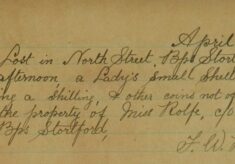 April
Lost in North Street, Bps Stort
afternoon a Lady's Small Shell
ng a Shilling, & other coins not of
the property of Miss Rolfe, c/o
Bps Stortford,
F. W.